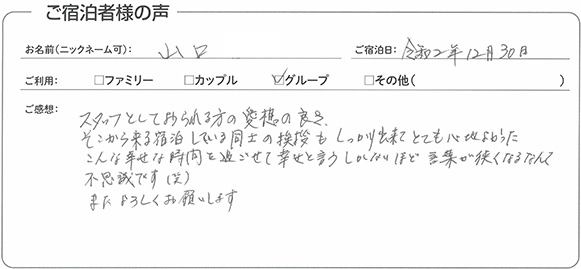 ご宿泊者様の声
お名前(ニックネーム可): 山口 ご宿泊日: 令和2年12月30日
ご利用: □ファミリー □カップル ☑グループ □その他( )
ご感想:
スタッフとしておられる方の愛想の良さ、
そこから来る宿泊している同士の挨拶も しっかり出来て とても心地よかった
こんな幸せな時間を過ごせて幸せと言うしかないほど 言葉が狭くなるなんて
不思議です(笑)
またよろしくお願いします